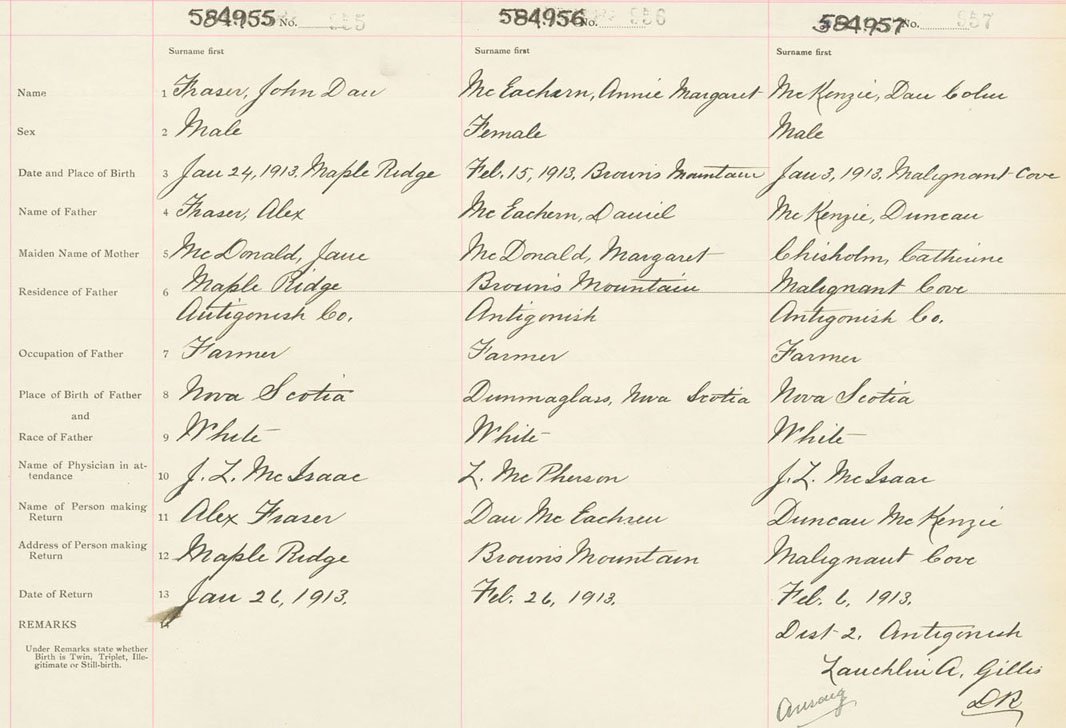 584955 No. 955
584956 No. 956
584957 No. 957
Surname first
Surname first
Surname first
Name 1 Fraser, John Dan McEachern, Annie Margaret McKenzie, Dan Colin
Sex 2 Male Female Male
Date and Place of Birth 3 Jan 24, 1913. Maple Ridge Feb. 15, 1913. Brown's Mountain Jan 3, 1913. Malignant Cove
Name of Father 4 Fraser, Alex McEachern, Daniel McKenzie, Duncan
Maiden Name of Mother 5 McDonald, Jane McDonald, Margaret Chisholm, Catherine
Residence of Father 6 Maple Ridge Brown's Mountain Malignant Cove
Antigonish Co. Antigonish Antigonish Co.
Occupation of Father 7 Farmer Farmer Farmer
Place of Birth of Father 8 Nova Scotia Dunmaglass, Nova Scotia Nova Scotia
and
Race of Father 9 White White White
Name of Physician in at-
tendance 10 J. L. McIsaac L. McPherson J. L. McIsaac
Name of Person making
Return 11 Alex Fraser Dan McEachren Duncan McKenzie
Address of Person making
Return 12 Maple Ridge Brown's Mountain Malignant Cove
Date of Return 13 Jan 26, 1913. Feb. 26, 1913. Feb. 6, 1913.
REMARKS 14 Dist 2. Antigonish
Under Remarks state whether
Birth is Twin, Triplet, Ille-
gitimate or Still-birth.
Lauchlin A. Gillis
DR